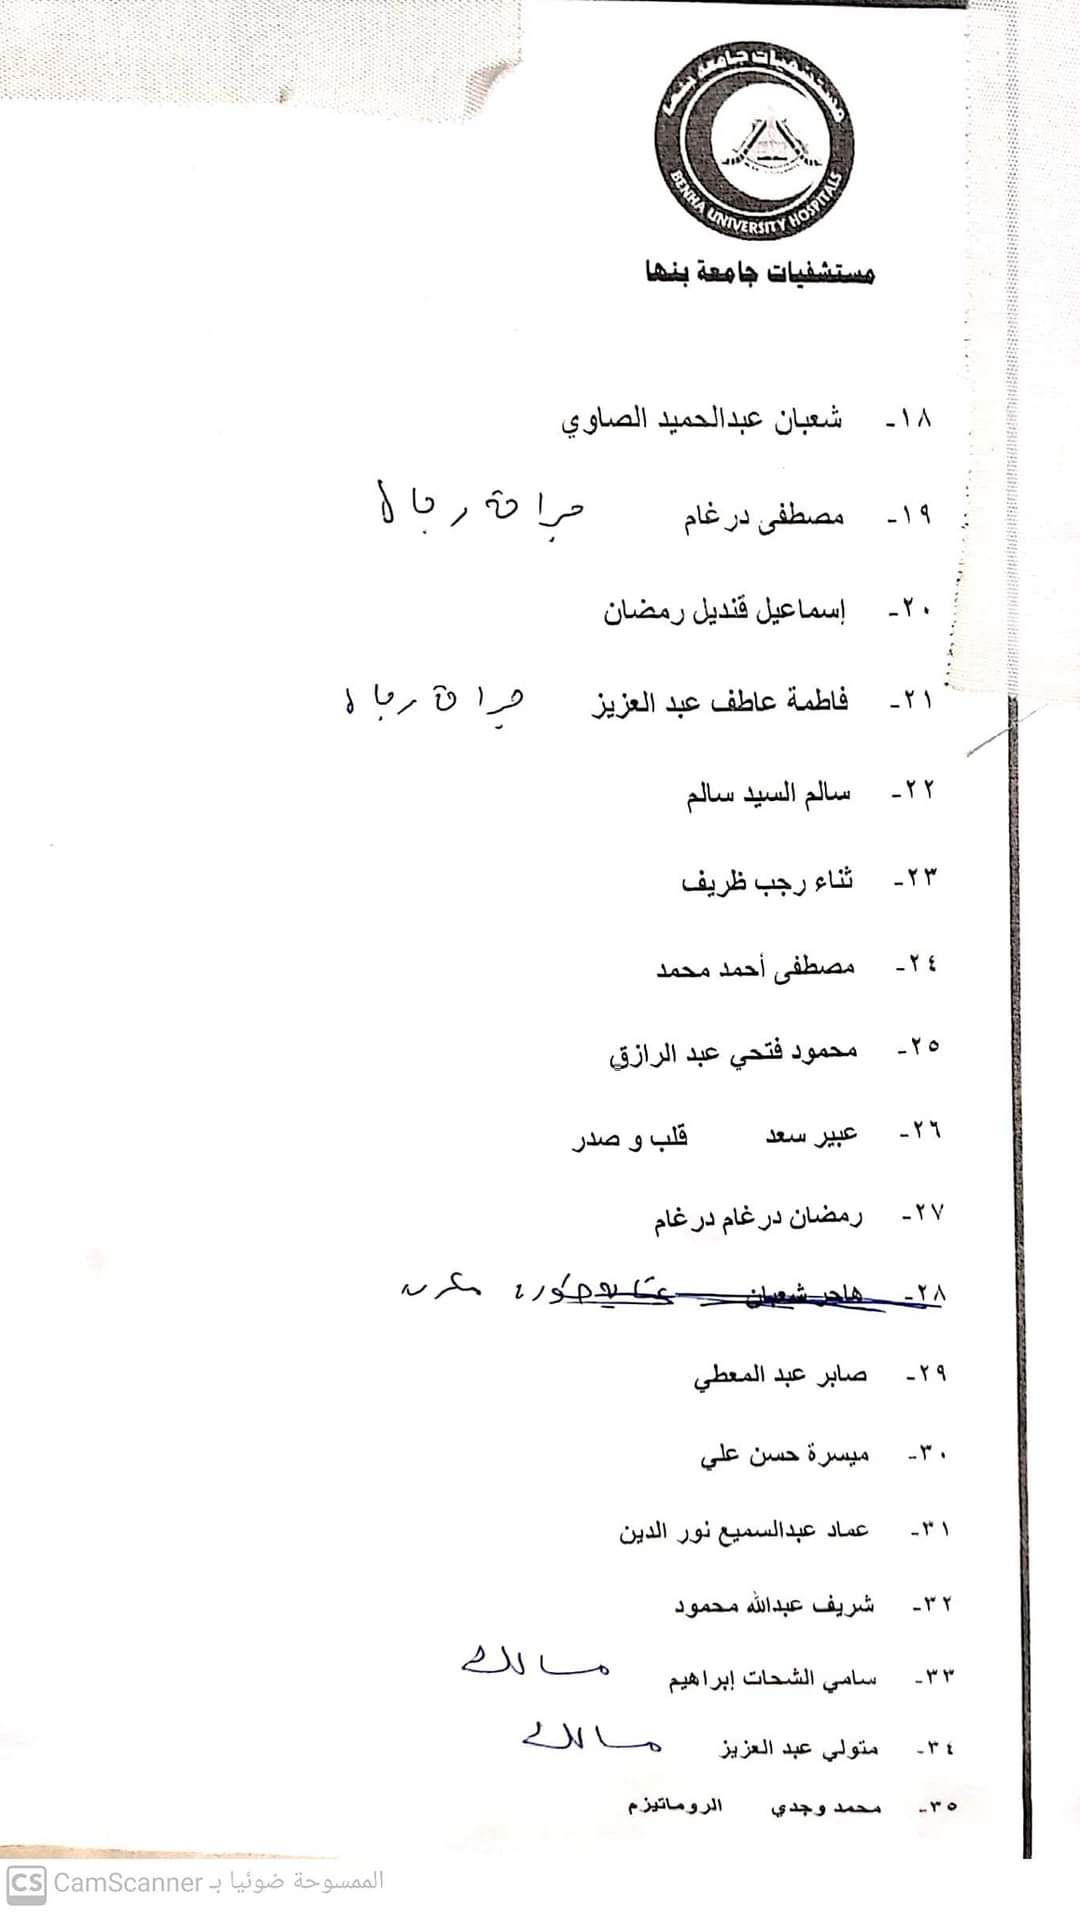 مستشفيات جامعة بنها
BENHA UNIVERSITY HOSPITALS
مستشفيات جامعة بنها
١٨- شعبان عبدالحميد الصاوي
١٩- مصطفى درغام جراحة رجال
٢٠- إسماعيل قنديل رمضان
٢١- فاطمة عاطف عبد العزيز جراحة رجال
٢٢- سالم السيد سالم
٢٣- ثناء رجب ظريف
٢٤- مصطفى أحمد محمد
٢٥- محمود فتحي عبد الرازق
٢٦- عبير سعد قلب و صدر
٢٧- رمضان درغام درغام
٢٨- هاجر شعبان
٢٩- صابر عبد المعطي
٣٠- ميسرة حسن علي
٣١- عماد عبدالسميع نور الدين
٣٢- شريف عبدالله محمود
٣٣- سامي الشحات إبراهيم مسالك
٣٤- متولي عبد العزيز مسالك
٣٥- محمد وجدي الروماتيزم
CS CamScanner الممسوحة ضوئيا بـ